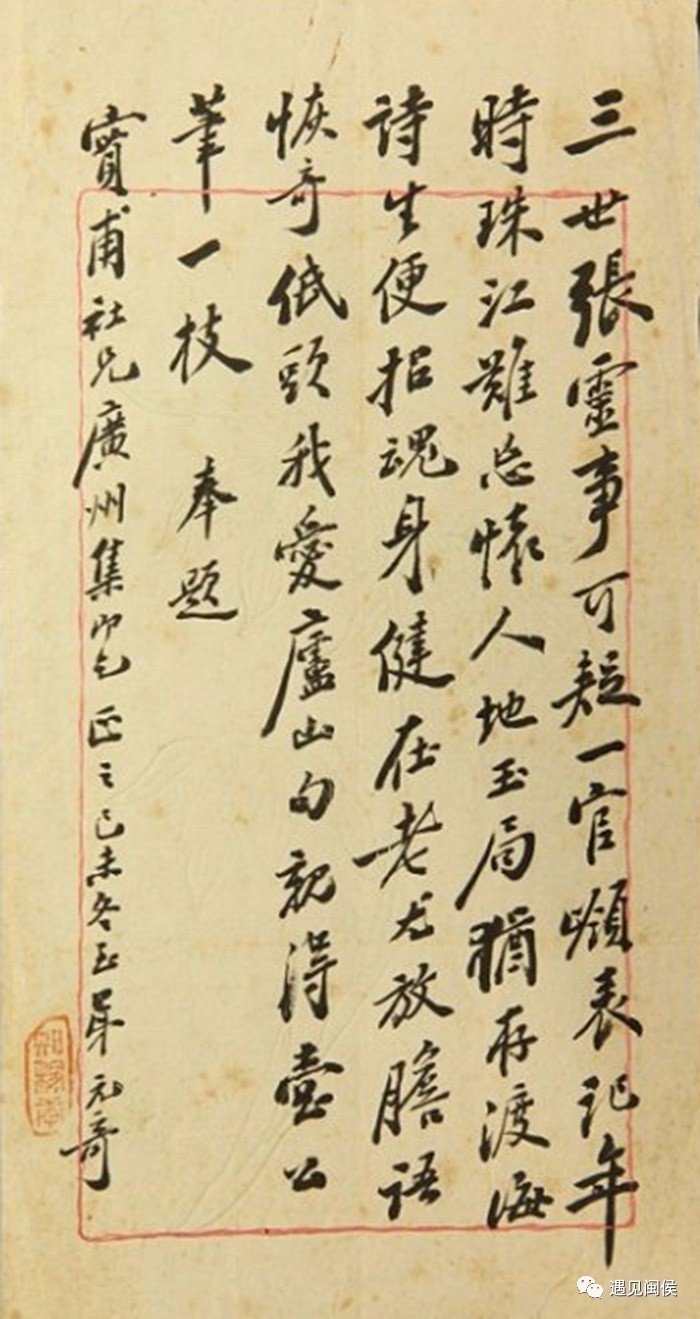 三世張靈事可疑一官嶺表記年
時珠江難忘懷人地玉局猶存渡海
詩生便招魂身健在老尤放膽語
恢奇低頭我愛廬山句親得壺公
筆一枝 奉題
實甫社兄廣州集即乞正之己未冬至弟元奇
遇见闽侯